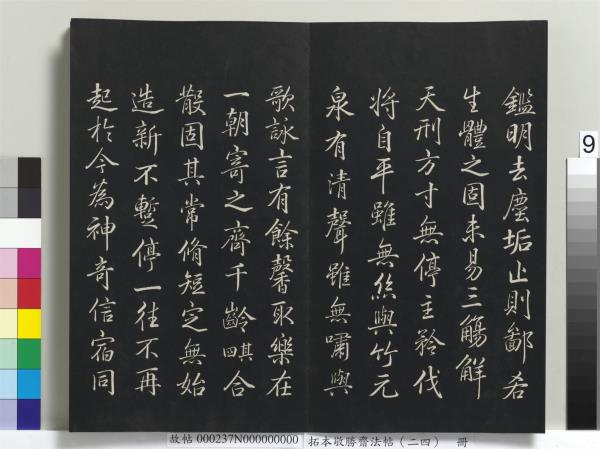 鑑明去塵垢止則鄙吝
生體之固未易三觴解
天刑方寸無停主矜伐
將自平雖無絲與竹元
泉有清聲雖無嘯與
歌詠言有餘馨取樂在
一朝寄之齊千齡其四合
散固其常脩短定無始
造新不暫停一往不再
起於今為神奇信宿同
9
故帖 000237N000000000 拓本敬勝齋法帖(二四) 冊